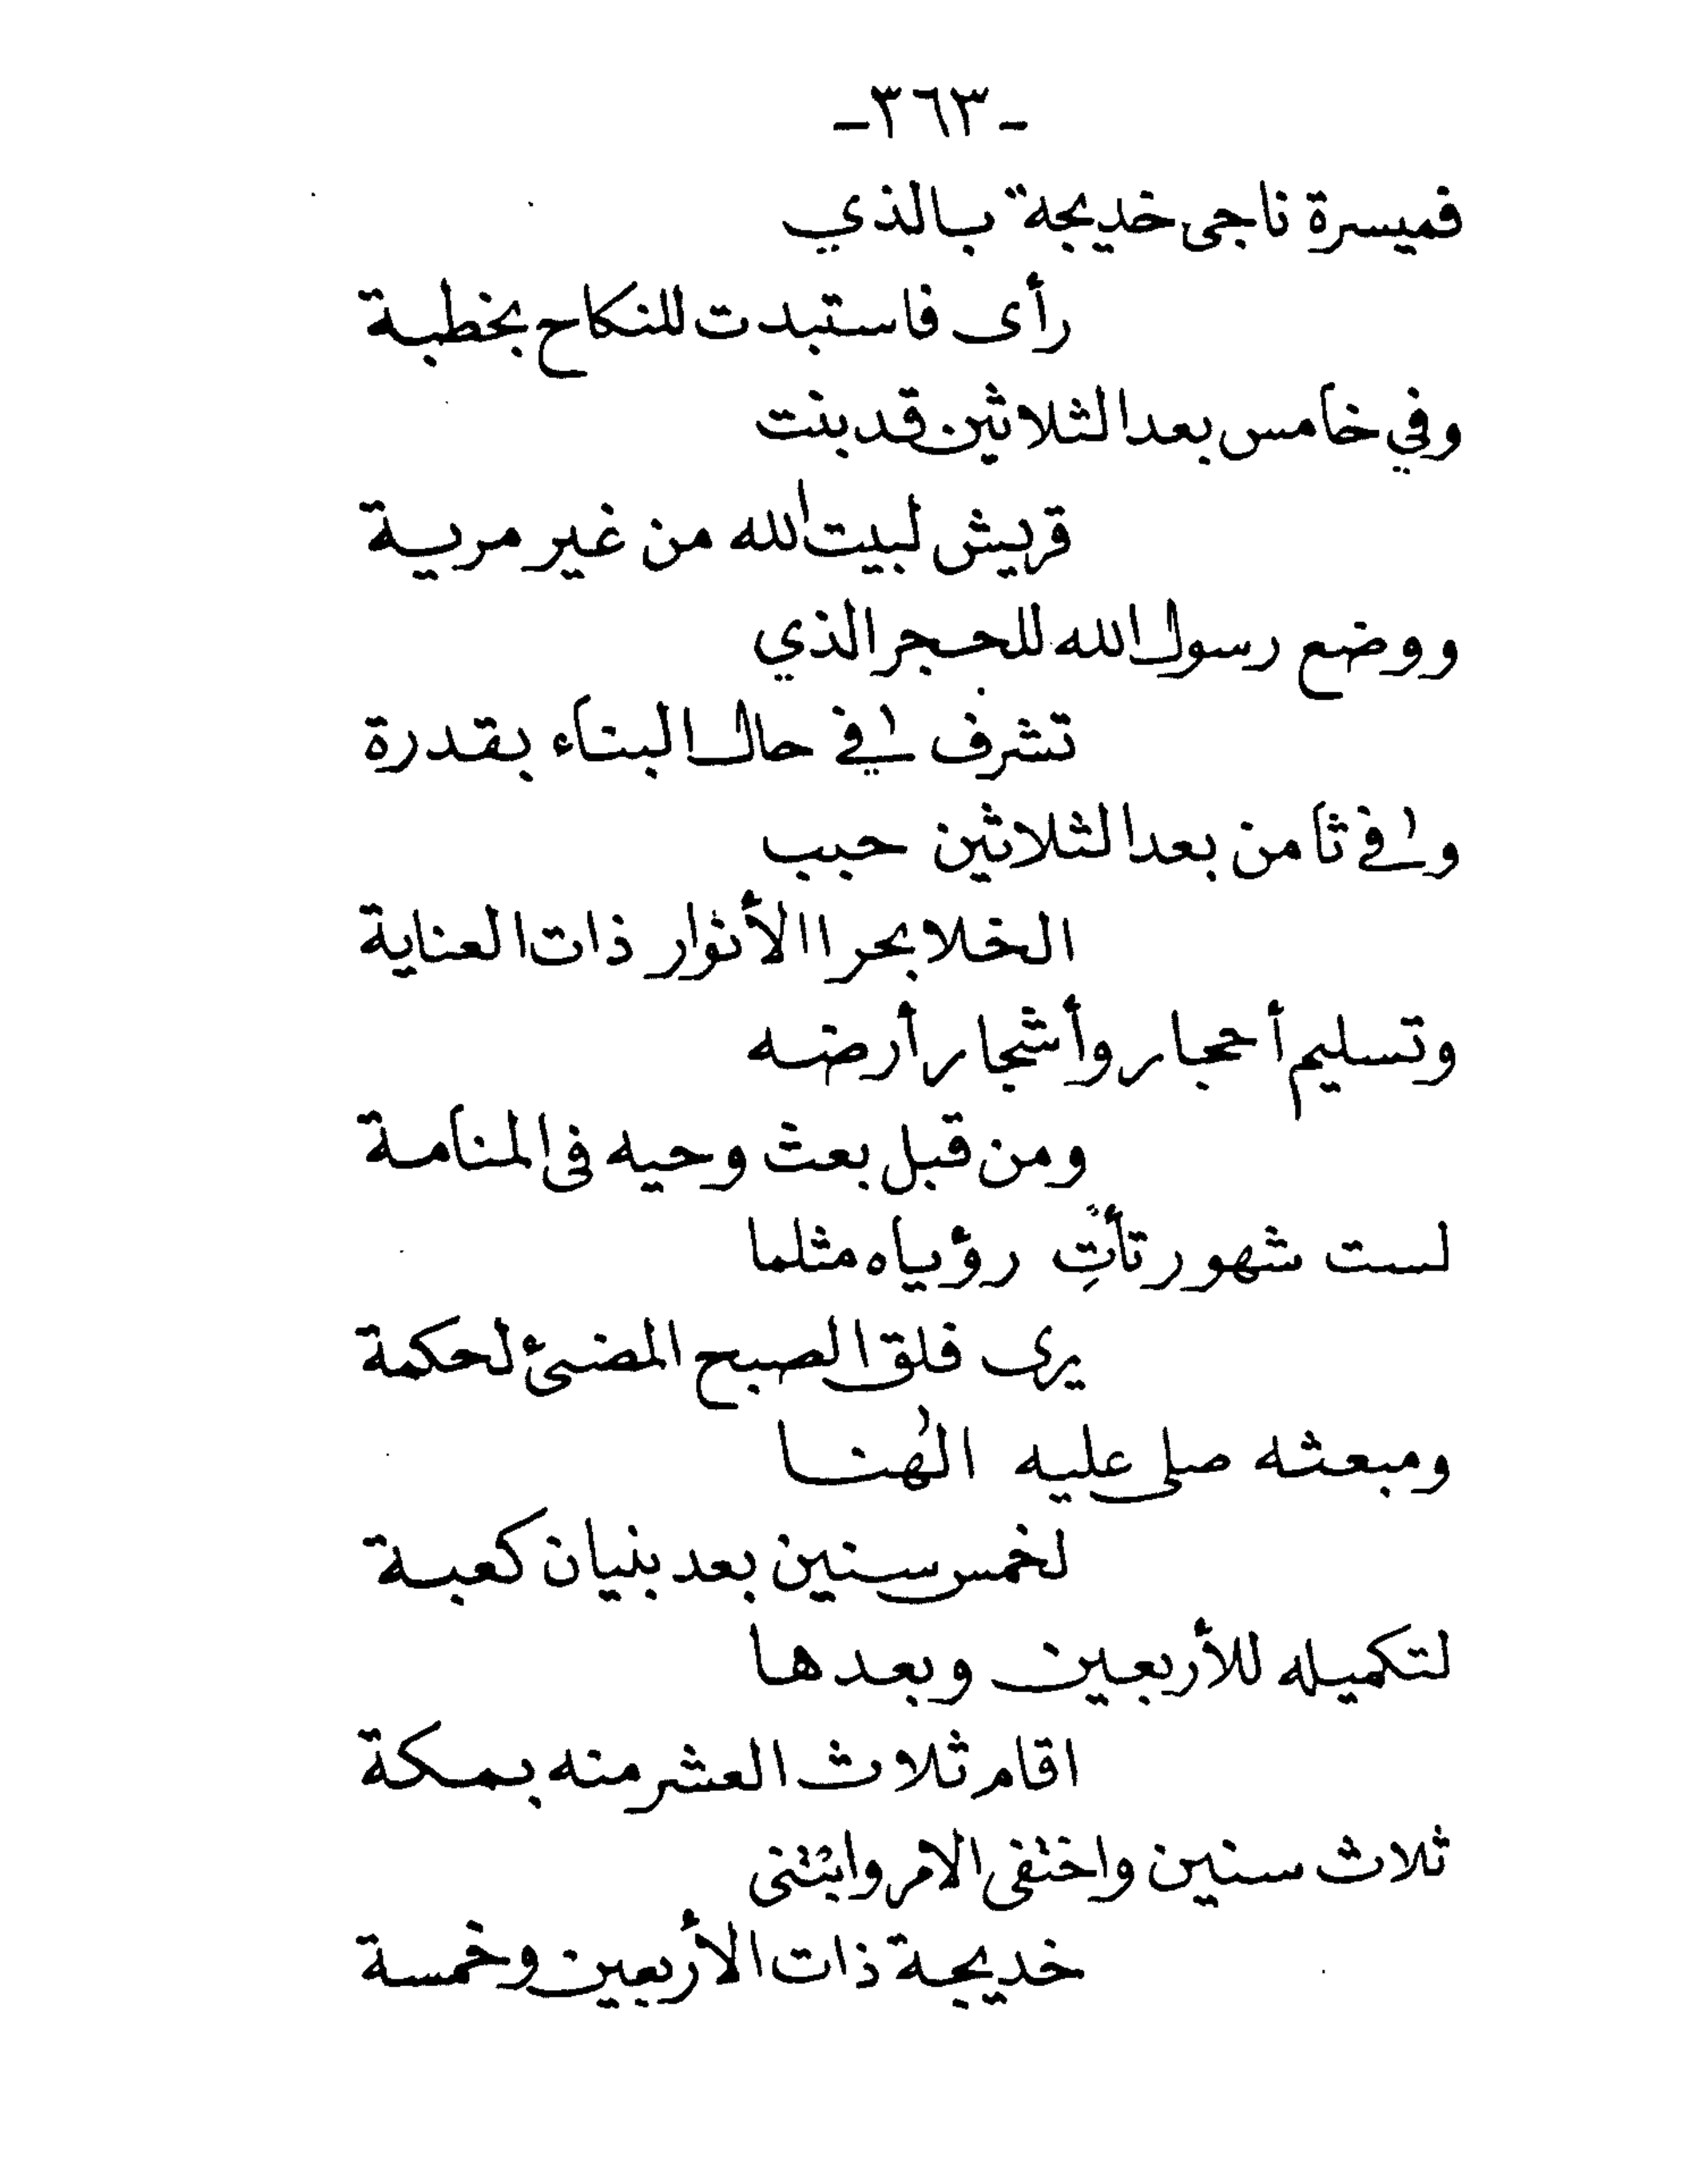 -٣٦٣-
فميسرة ناجى خديجة بالذي
رأى فاستبدت للنكاح بخطبة
وفي خامس بعد الثلاثين قد بنت
قريش لبيت الله من غير مرية
ووضع رسول الله للحجر الذي
تشرف في حال البناء بقدرة
وفي ثامن بعد الثلاثين حبب
الخلا بحرا الأنوار ذات العناية
وتسليم أحجار وأشجار أرضه
ومن قبل بعث وحيه في المنامة
لست شهور تأتِ رؤياه مثلما
يرى فلق الصبح المضئ لحكمة
ومبعثه صلى عليه الهنا
لخمس سنين بعد بنيان كعبة
لتكميله للأربعين وبعدها
اقام ثلاث العشر منه بمكة
ثلاث سنين واختفى الامر وابتنى
خديجة ذات الأربعين وخمسة